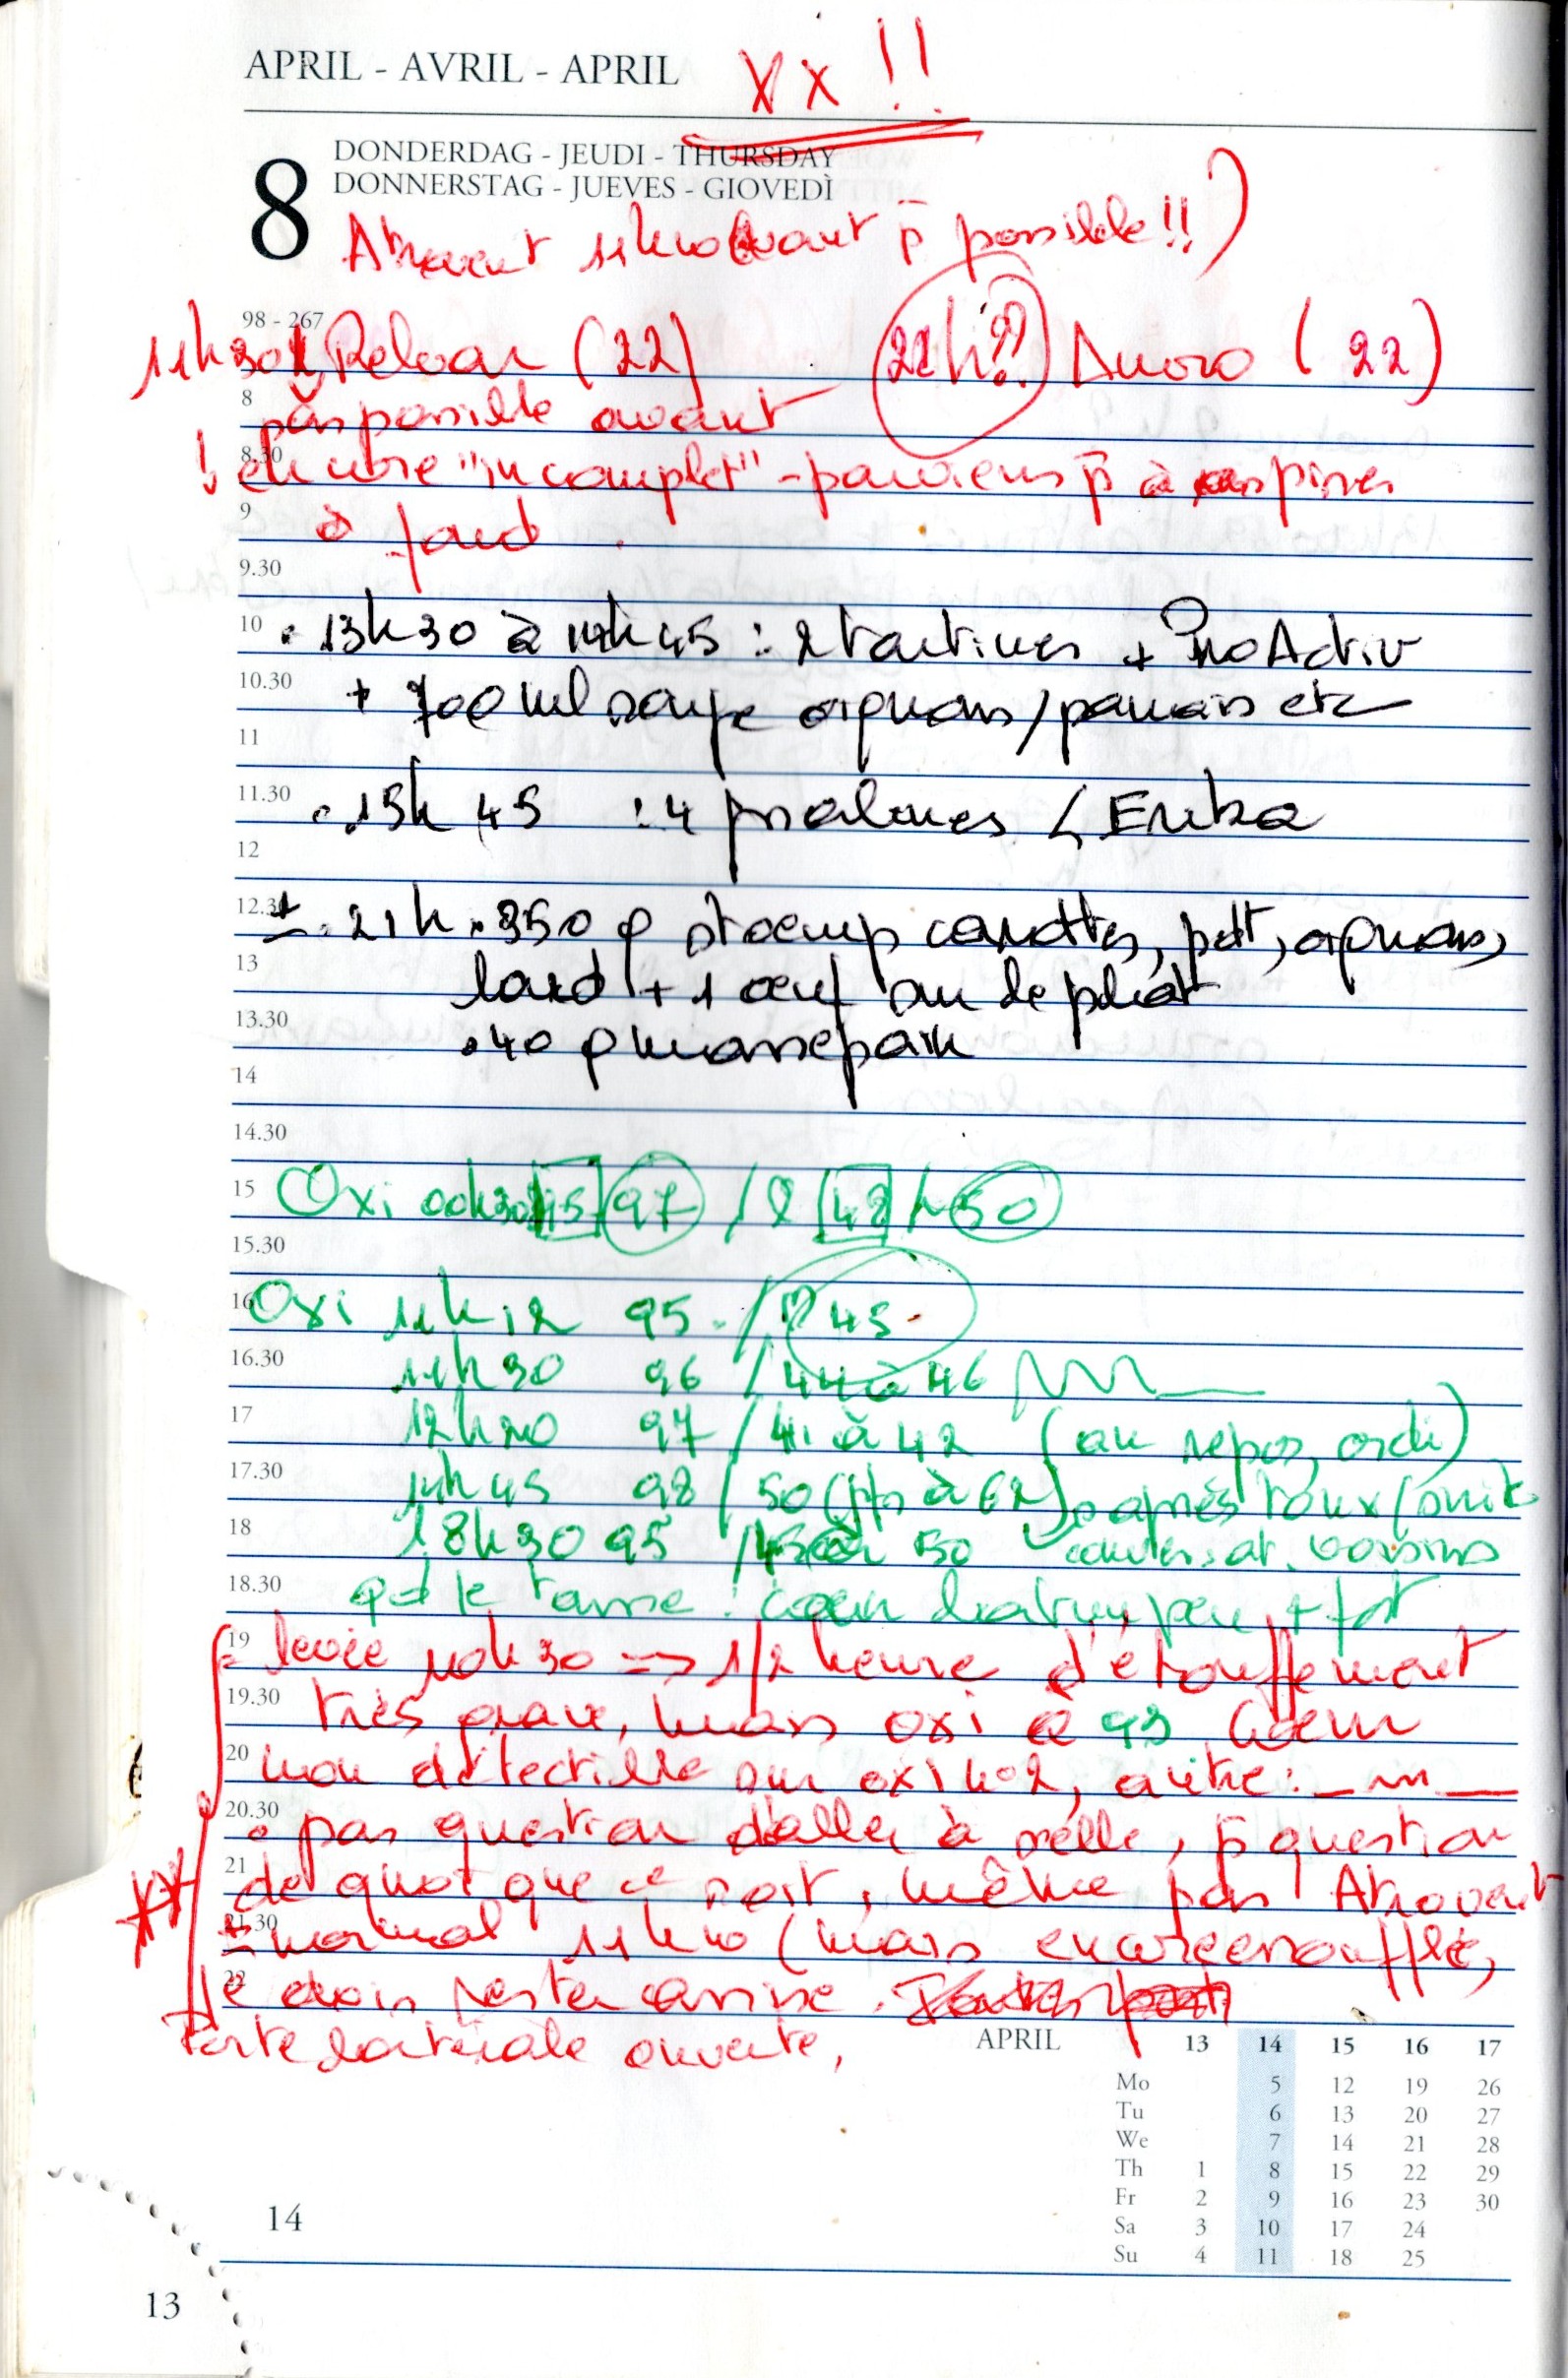 APRIL - AVRIL - APRIL
XX !!
8
DONDERDAG - JEUDI - THURSDAY
DONNERSTAG - JUEVES - GIOVEDÌ
Atrovent 11h10 avant p̄ possible !! )
98 - 267
11h30 Relvar (22) 22h?? Anoro (22)
pas possible avant
8
! encore "incomplet" - parviens p̄ à aspirer
8.30
à fond.
9
9.30
10
• 13h30 à 14h45 : 2 tartines + ProActiv
10.30
+ 700 ml soupe oignons/panais etc
11
11.30
• 15h45 : 4 psalmes / Erika
12
12.30
± . 21h . 350 g stoemp carottes, pdt, oignons,
13
lard + 1 œuf sur le plat
13.30
• 40 g massepain
14
14.30
15
Oxi 00h30 95 97 / 48 / 50
15.30
16
Oxi 11h12 95 . / ? 45 .
16.30
11h30 96 / 44 à 46
17
12h20 97 / 41 à 42 (au repos, ordi)
17.30
14h45 98 / 50 (pfs à 62) après toux/suite
18
18h30 95 / 45 à 50 conversat. voisins
18.30
qd je tousse : cœur bat un peu + fort
19
levée 10h30 => 1/2 heure d'étouffement
19.30
très grave, mais oxi à 93 cœur
20
non détectible sur oxi n°2, autre :
20.30
• pas question d'aller à selle, p̄ question
21
de quoi que ce soit, même pas Atrovent
21.30
± normal 11h10 (mais encore essoufflée,
22
je dois rester assise.
Porte latérale ouverte,
APRIL 13 14 15 16 17
Mo 5 12 19 26
Tu 6 13 20 27
We 7 14 21 28
Th 1 8 15 22 29
Fr 2 9 16 23 30
Sa 3 10 17 24
Su 4 11 18 25
14
13